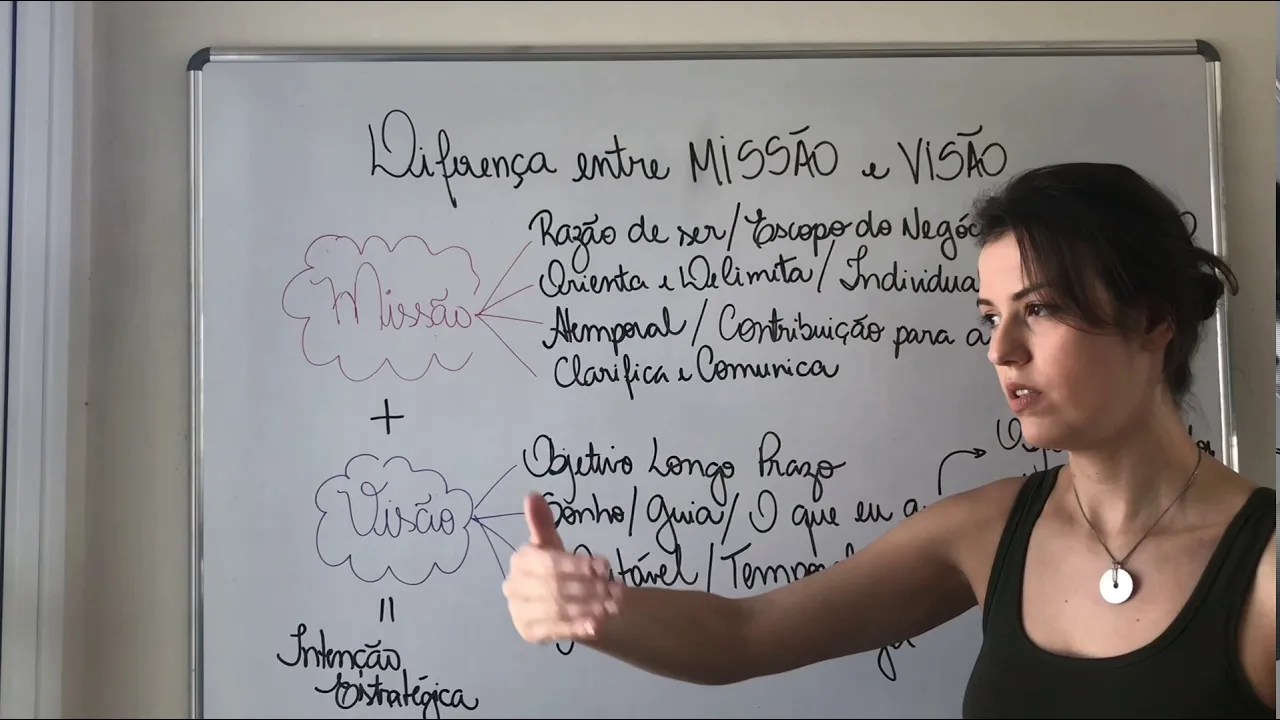 Diferença entre MISSÃO e VISÃO
Missão
Razão de ser/ Escopo do
Orienta e Delimita/
Atemporal / Contribuição para a
Clarifica e Comunica
+
Visão
Objetivo Longo Prazo
Sonho/ Guia/ O que eu
=
Intenção
Estratégica